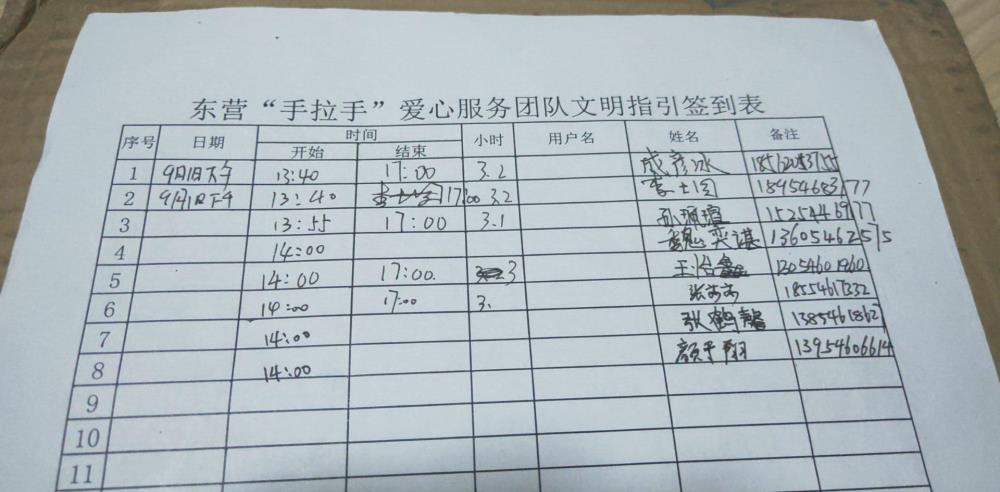 东营“手拉手”爱心服务团队文明指引签到表
序号 日期 时间 小时 用户名 姓名 备注
开始 结束
1 9月1日下午 13:40 17:00 3.2 成彦冰
2 9月1日下午 13:40 17:00 3.2 18954683177
3 13:55 17:00 3.1 孙珮瑄 15254469177
4 14:00 魏奕谌 13605462575
5 14:00 17:00. 3 王怡鑫 13054601960
6 14:00 17:00 3. 18554617332
7 14:00 张鹤馨 13854618627
8 14:00 颜于翔 13954606614
9
10
11